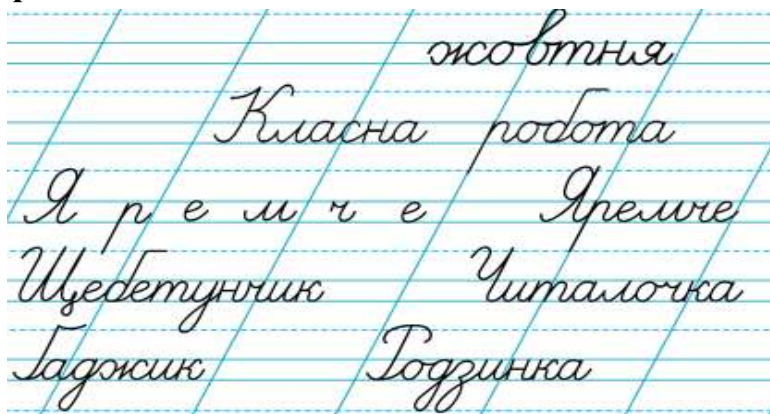 жовтня
Класна робота
Я р е м ч е Яремче
Щебетунчик Читалочка
Гаджик Родзинка